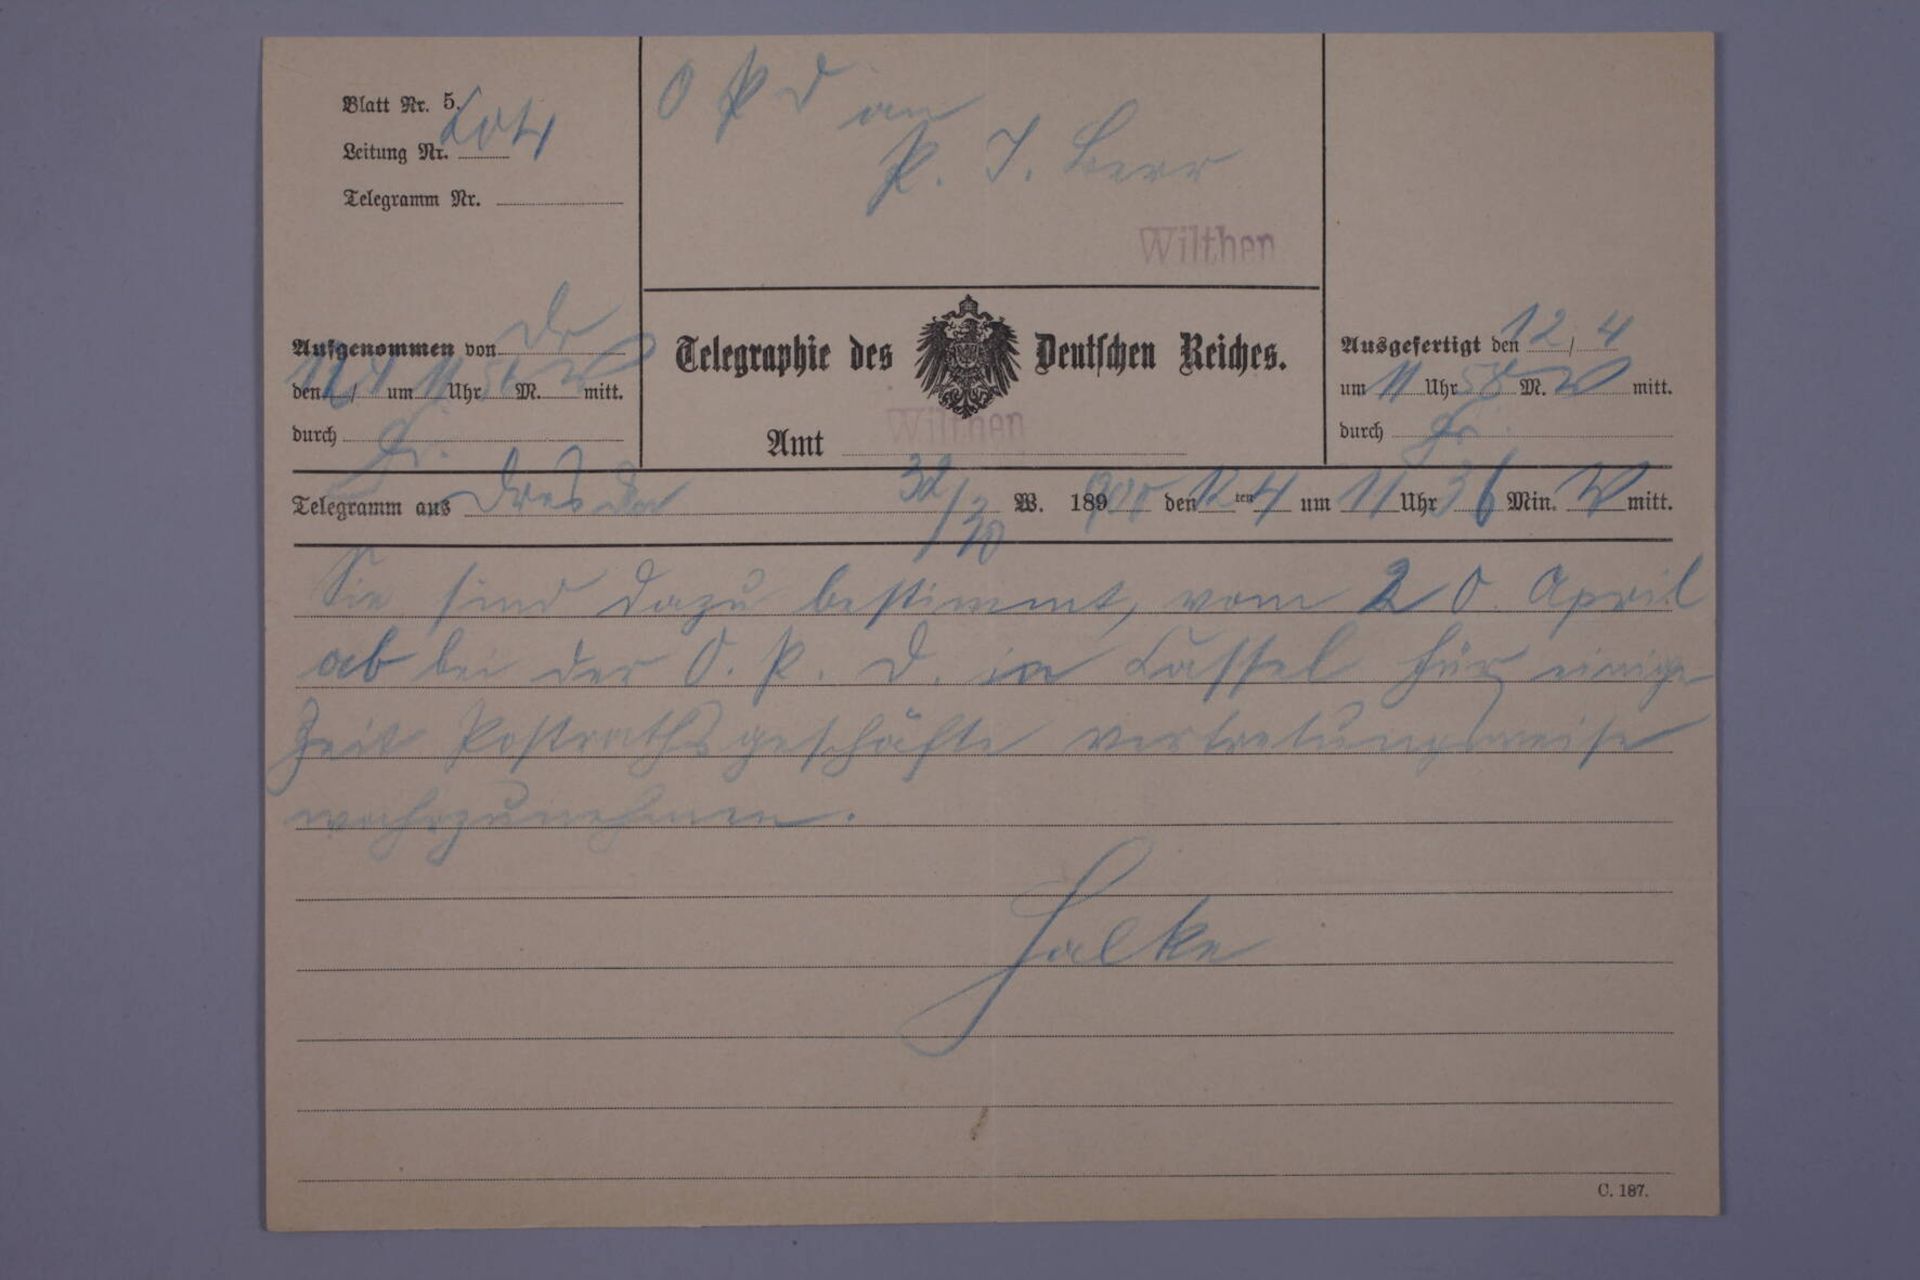 Blatt Nr. 5.
Leitung Nr.
Telegramm Nr.
O P D an
P. I. Berr
Wilthen
Aufgenommen von Dr
den 12/4 um 11 Uhr M. V mitt.
durch Fr.
Telegraphie des Deutschen Reiches.
Amt Wilthen
Ausgefertigt den 12/4
um 11 Uhr 58 M. V mitt.
durch Fr.
Telegramm aus Dresden 32/30 W. 1890 900 den 12 ten 4 um 11 Uhr 36 Min. V mitt.
Sie sind dazu bestimmt, vom 20. April
ab bei der O. P. D. in Cassel für einige
Zeit Postrathsgeschäfte vertretungsweise
wahrzunehmen.
Halke
C. 187.